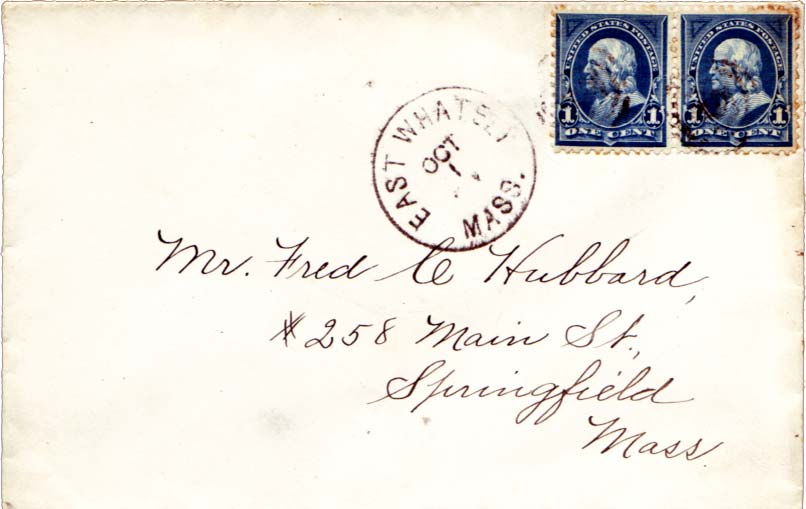 UNITED STATES POSTAGE
1 1
ONE CENT
UNITED STATES POSTAGE
1 1
ONE CENT
EAST WHATELY
OCT
1
MASS.
Mr. Fred C Hubbard,
#258 Main St.,
Springfield
Mass.